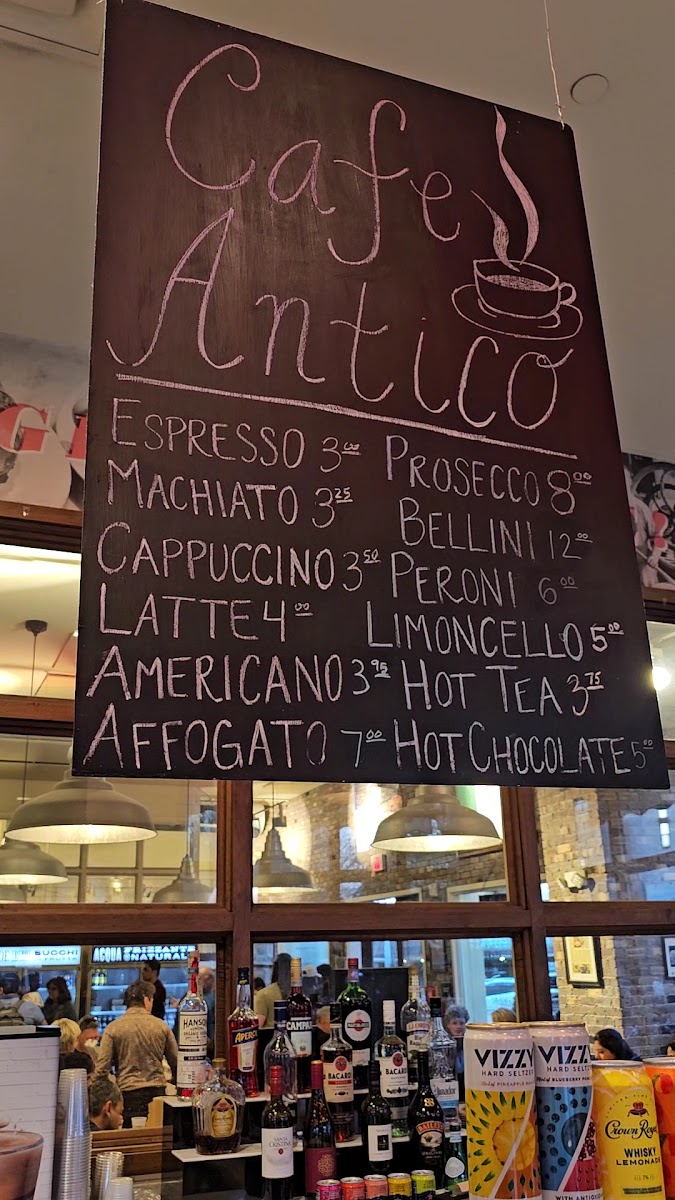 Cafe
Antico
ESPRESSO 3.00
MACHIATO 3.25
CAPPUCCINO 3.50
LATTE 4.00
AMERICANO 3.95
AFFOGATO 7.00
PROSECCO 8.00
BELLINI 12.00
PERONI 6.00
LIMONCELLO 5.00
HOT TEA 3.75
HOT CHOCOLATE 5.00
ACQUA FRIZZANTE
NATURALE
SUCCHI
HANSON
APEROL
CAMPARI
BACARDI
BACARDI
BAILEYS
SANTA CRISTINA
VIZZY
HARD SELTZER
PINEAPPLE
VIZZY
HARD SELTZER
BLUEBERRY
WITH ANTIOX
Crown Royal
WHISKY
LEMONADE